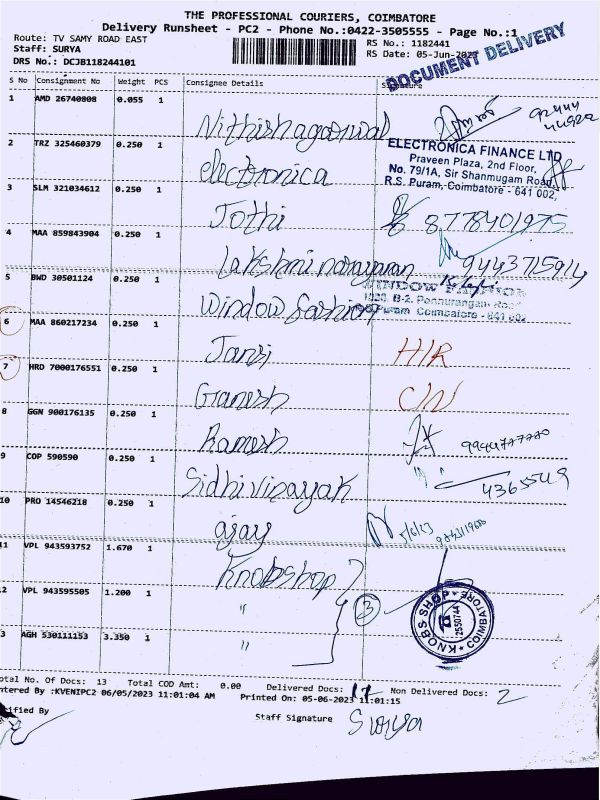 THE PROFESSIONAL COURIERS, COIMBATORE
Delivery Runsheet - PC2 - Phone No.:0422-3505555 - Page No.:1
Route: TV SAMY ROAD EAST
RS No.: 1182441
Staff: SURYA
RS Date: 05-Jun-2023
DRS No.: DCJB118244101
DOCUMENT DELIVERY
S No Consignment No Weight PCS Consignee Details Signature
1 AMD 26740808 0.055 1 Nithish agarwal
2 TRZ 325460379 0.250 1 electronica
ELECTRONICA FINANCE LTD
Praveen Plaza, 2nd Floor,
No. 79/1A, Sir Shanmugam Road,
R.S. Puram, Coimbatore - 641 002,
3 SLM 321034612 0.250 1 Jothi 8778401975
4 MAA 859843904 0.250 1 Lakshmi narayanan 9443715914
5 BWD 30501124 0.250 1 Window fashion
WINDOW FASHION
B-2, Ponnurangam Road
Puram Coimbatore - 641 002
6 MAA 860217234 0.250 1 Jansi H/R
7 HRD 7000176551 0.250 1 Ganesh C/N
8 GGN 900176135 0.250 1 Ramesh 9944777770
9 COP 590590 0.250 1 Sidhivinayak 4365549
10 PRO 14546218 0.250 1 ajay 5/6/23
11 VPL 943593752 1.670 1 Knobshop
2 VPL 943595505 1.200 1 " 3
3 AGH 530111153 3.350 1 "
KNOB S SHOP
2550744
COIMBATORE
otal No. Of Docs: 13 Total COD Amt: 0.00 Delivered Docs: 11 Non Delivered Docs: 2
ntered By :KVENIPC2 06/05/2023 11:01:04 AM Printed On: 05-06-2023 11:01:15
ified By
Staff Signature Surya